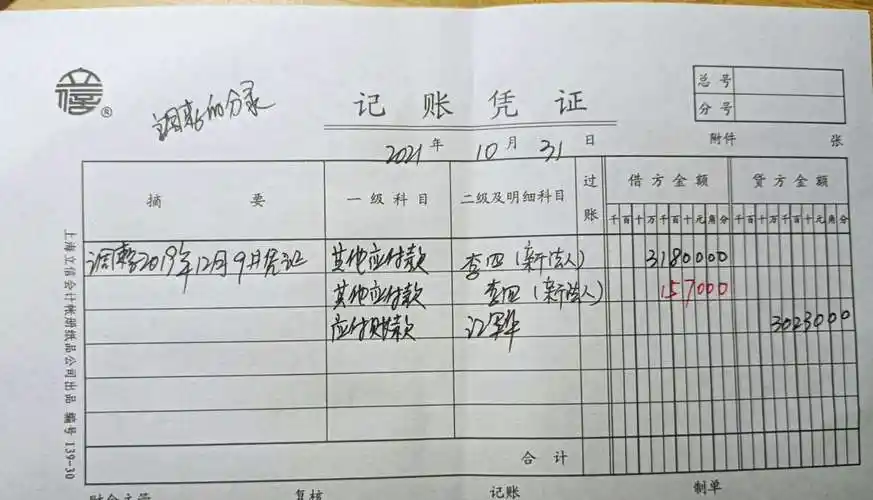 信®
调整的分录
记账凭证
总号
分号
2021年10月31日
附件 张
摘要 一级科目 二级及明细科目 过账 借方金额 贷方金额
千百十万千百十元角分 千百十万千百十元角分
调整2019年12月9#凭证 其他应付款 李四(新法人) 3180000
其他应付款 李四(新法人) 157000
应付账款 3023000
合计
复核 记账 制单
上海立信会计帐册纸品公司出品 编号 139-30